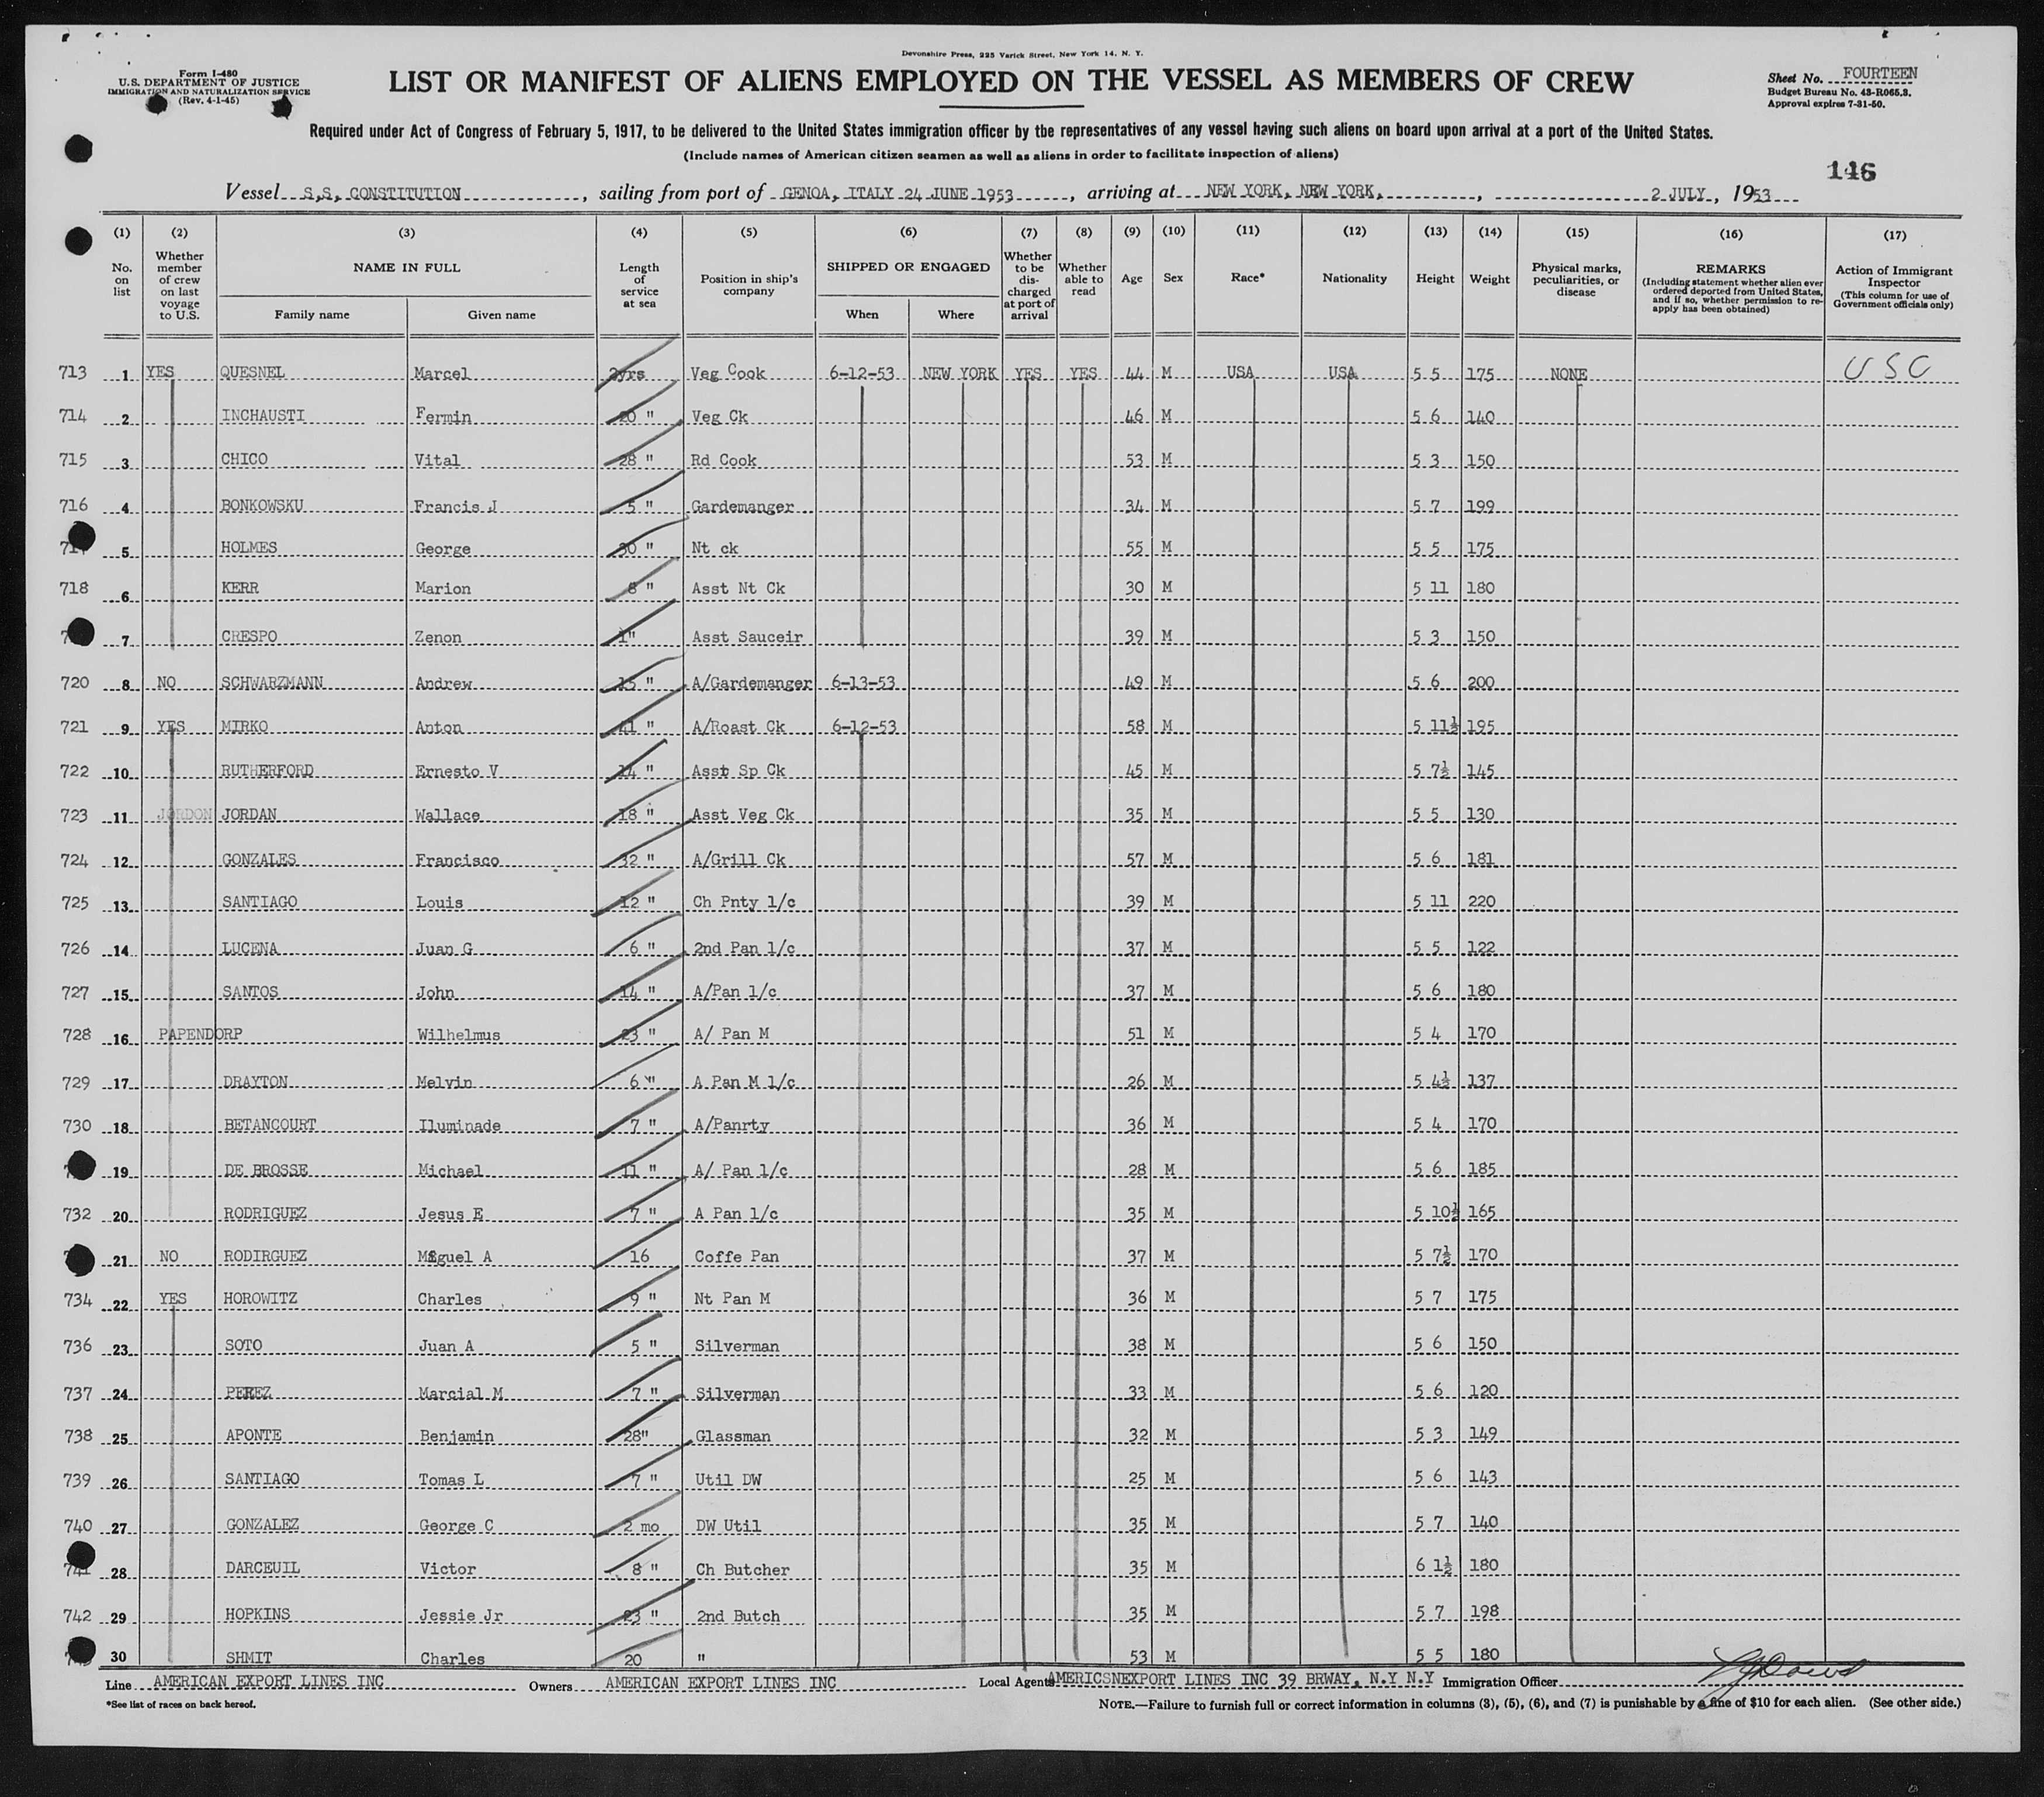 Devonshire Press, 225 Varick Street, New York 14, N. Y.
Form I-480
U.S. DEPARTMENT OF JUSTICE
IMMIGRATION AND NATURALIZATION SERVICE
(Rev. 4-1-45)
LIST OR MANIFEST OF ALIENS EMPLOYED ON THE VESSEL AS MEMBERS OF CREW
Sheet No. FOURTEEN
Budget Bureau No. 43-R065.3.
Approval expires 7-31-50.
Required under Act of Congress of February 5, 1917, to be delivered to the United States immigration officer by the representatives of any vessel having such aliens on board upon arrival at a port of the United States.
(Include names of American citizen seamen as well as aliens in order to facilitate inspection of aliens)
146
Vessel S.S. CONSTITUTION, sailing from port of GENOA, ITALY 24 JUNE 1953, arriving at NEW YORK, NEW YORK, 2 JULY, 1953
(1) (2) (3) (4) (5) (6) (7) (8) (9) (10) (11) (12) (13) (14) (15) (16) (17)
No. on list
Whether member of crew on last voyage to U.S.
NAME IN FULL
Family name
Given name
Length of service at sea
Position in ship's company
SHIPPED OR ENGAGED
When
Where
Whether to be discharged at port of arrival
Whether able to read
Age
Sex
Race*
Nationality
Height
Weight
Physical marks, peculiarities, or disease
REMARKS
(Including statement whether alien ever ordered deported from United States, and if so, whether permission to reapply has been obtained)
Action of Immigrant Inspector
(This column for use of Government officials only)
713 1 YES QUESNEL Marcel 2yrs Veg Cook 6-12-53 NEW YORK YES YES 44 M USA USA 5 5 175 NONE USC
714 2 INCHAUSTI Fermin 20 " Veg Ck 46 M 5 6 140
715 3 CHICO Vital 28 " Rd Cook 53 M 5 3 150
716 4 BONKOWSKU Francis J 5 " Gardemanger 34 M 5 7 199
5 HOLMES George 30 " Nt ck 55 M 5 5 175
718 6 KERR Marion 8 " Asst Nt Ck 30 M 5 11 180
7 CRESPO Zenon 1" Asst Sauceir 39 M 5 3 150
720 8 NO SCHWARZMANN Andrew 15 " A/Gardemanger 6-13-53 49 M 5 6 200
721 9 YES MIRKO Anton 41 " A/Roast Ck 6-12-53 58 M 5 11½ 195
722 10 RUTHERFORD Ernesto V 14 " Asst Sp Ck 45 M 5 7½ 145
723 11 JORDON JORDAN Wallace 18 " Asst Veg Ck 35 M 5 5 130
724 12 GONZALES Francisco 32 " A/Grill Ck 57 M 5 6 181
725 13 SANTIAGO Louis 12 " Ch Pnty 1/c 39 M 5 11 220
726 14 LUCENA Juan G 6 " 2nd Pan 1/c 37 M 5 5 122
727 15 SANTOS John 14 " A/Pan 1/c 37 M 5 6 180
728 16 PAPENDORP Wilhelmus 23 " A/ Pan M 51 M 5 4 170
729 17 DRAYTON Melvin 6 " A Pan M 1/c 26 M 5 4½ 137
730 18 BETANCOURT Iluminade 7 " A/Panrty 36 M 5 4 170
19 DE BROSSE Michael 11 " A/ Pan 1/c 28 M 5 6 185
732 20 RODRIGUEZ Jesus E 7 " A Pan 1/c 35 M 5 10½ 165
21 NO RODIRGUEZ Miguel A 16 Coffe Pan 37 M 5 7½ 170
734 22 YES HOROWITZ Charles 9 " Nt Pan M 36 M 5 7 175
736 23 SOTO Juan A 5 " Silverman 38 M 5 6 150
737 24 PEREZ Marcial M 7 " Silverman 33 M 5 6 120
738 25 APONTE Benjamin 28" Glassman 32 M 5 3 149
739 26 SANTIAGO Tomas L 7 " Util DW 25 M 5 6 143
740 27 GONZALEZ George C 2 mo DW Util 35 M 5 7 140
741 28 DARCEUIL Victor 8 " Ch Butcher 35 M 6 1½ 180
742 29 HOPKINS Jessie Jr 23 " 2nd Butch 35 M 5 7 198
30 SHMIT Charles 20 " 53 M 5 5 180
Line AMERICAN EXPORT LINES INC Owners AMERICAN EXPORT LINES INC Local Agents AMERICSNEXPORT LINES INC 39 BRWAY, N.Y N.Y Immigration Officer
*See list of races on back hereof.
NOTE.—Failure to furnish full or correct information in columns (3), (5), (6), and (7) is punishable by a fine of $10 for each alien. (See other side.)